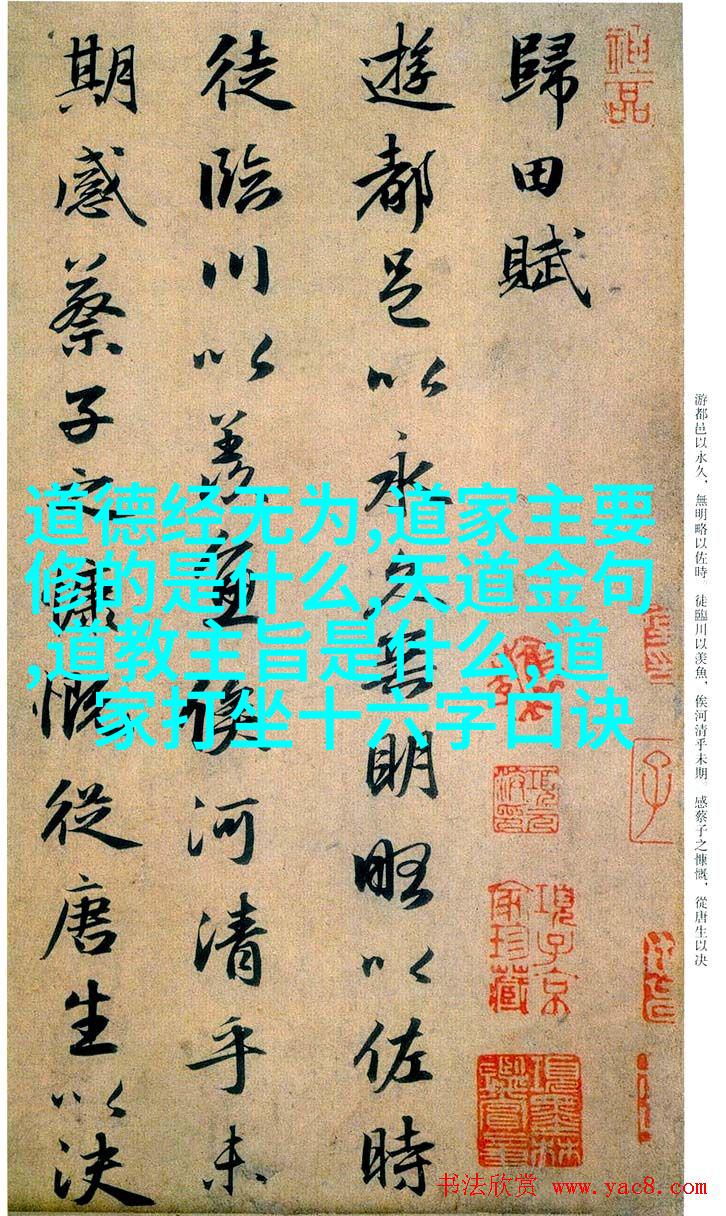 歸田賦
遊都邑以永久無明略以佐時
徒臨川以羨魚俟河清乎未
期感蔡子之慷慨從唐生以決
道德经无为,道家主要
修的是什么,天道金句
,道教主旨是什么,道
家打坐十六字口诀
游都邑以永久，無明略以佐時。徒臨川以羨魚，俟河清乎未期。感蔡子之慷慨，從唐生以决
項子京
家珍藏
项墨林
书法欣赏 www.yac8.com